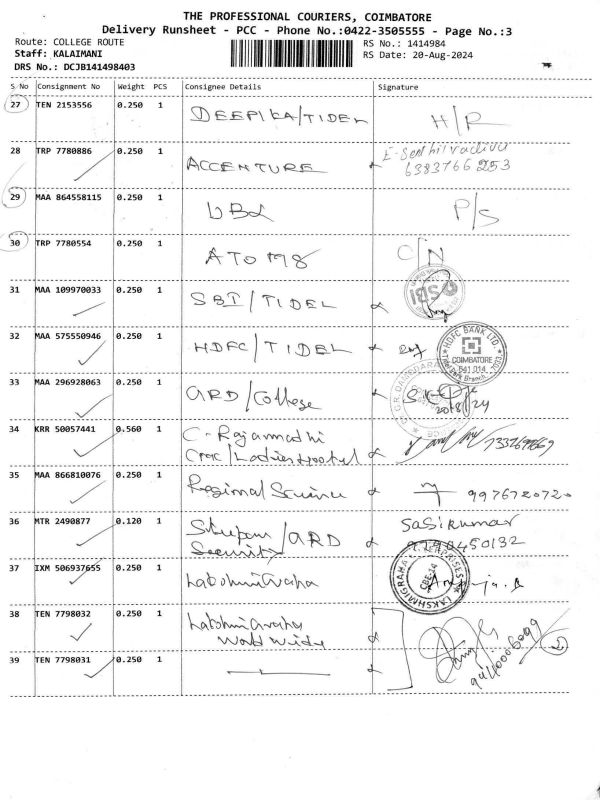 THE PROFESSIONAL COURIERS, COIMBATORE
Delivery Runsheet - PCC - Phone No.:0422-3505555 - Page No.:3
Route: COLLEGE ROUTE RS No.: 1414984
Staff: KALAIMANI RS Date: 20-Aug-2024
DRS No.: DCJB141498403
S No Consignment No Weight PCS Consignee Details Signature
27 TEN 2153556 0.250 1 DEEPIKA/TIDEL H/R
28 TRP 7780886 0.250 1 ACCENTURE E-Senthilvadivu
6383766253
29 MAA 864558115 0.250 1 P/S
30 TRP 7780554 0.250 1 C/N
31 MAA 109970033 0.250 1 SBI/TIDEL
SBI
32 MAA 575550946 0.250 1 HDFC/TIDEL
HDFC BANK LTD.
COIMBATORE
641 014
33 MAA 296928063 0.250 1 GRD/College
20/8/24
34 KRR 50057441 0.560 1 C-Rajamadhi
35 MAA 866810076 0.250 1 Regional Science
9976720720
36 MTR 2490877 0.120 1 /GRD Sasikumar
Security
37 IXM 506937655 0.250 1 Lakshmigraha
LAKSHMIGRAHA ENTERPRISES
CBE-14
38 TEN 7798032 0.250 1 Lakshmigraha
World Wide
39 TEN 7798031 0.250 1
2